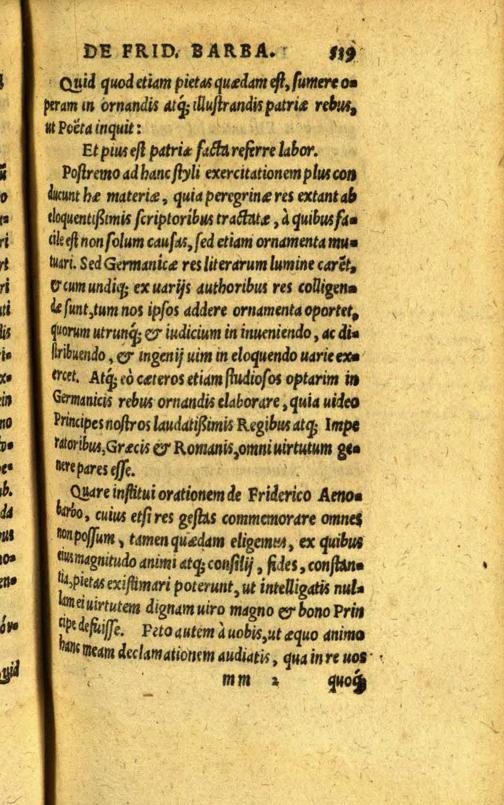 DE FRID. BARBA. 539
Quid quod etiam pietas quædam est, sumere o-
peram in ornandis atq; illustrandis patriæ rebus,
ut Poëta inquit:
Et pius est patriæ facta referre labor.
Postremo ad hanc styli exercitationem plus con
ducunt hæ materiæ, quia peregrinæ res extant ab
eloquentißimis scriptoribus tractatæ, à quibus fa-
cile est non solum causas, sed etiam ornamenta mu-
tuari. Sed Germanicæ res literarum lumine carẽt,
& cum undiq; ex uarijs authoribus res colligen-
dæ sunt, tum nos ipsos addere ornamenta oportet,
quorum utrunq; & iudicium in inueniendo, ac di-
stribuendo, & ingenij uim in eloquendo uarie ex-
ercet. Atq; eò cæteros etiam studiosos optarim in
Germanicis rebus ornandis elaborare, quia uideo
Principes nostros laudatißimis Regibus atq; Impe
ratoribus, Græcis & Romanis, omni uirtutum ge-
nere pares esse.
Quare institui orationem de Friderico Aeno-
barbo, cuius etsi res gestas commemorare omnes
non possum, tamen quædam eligemus, ex quibus
eius magnitudo animi atq; consilij, fides, constan-
tia, pietas existimari poterunt, ut intelligatis nul-
lam ei uirtutem dignam uiro magno & bono Prin
cipe defuisse. Peto autem à uobis, ut æquo animo
hanc meam declamationem audiatis, qua in re uos
mm 2 quoq;